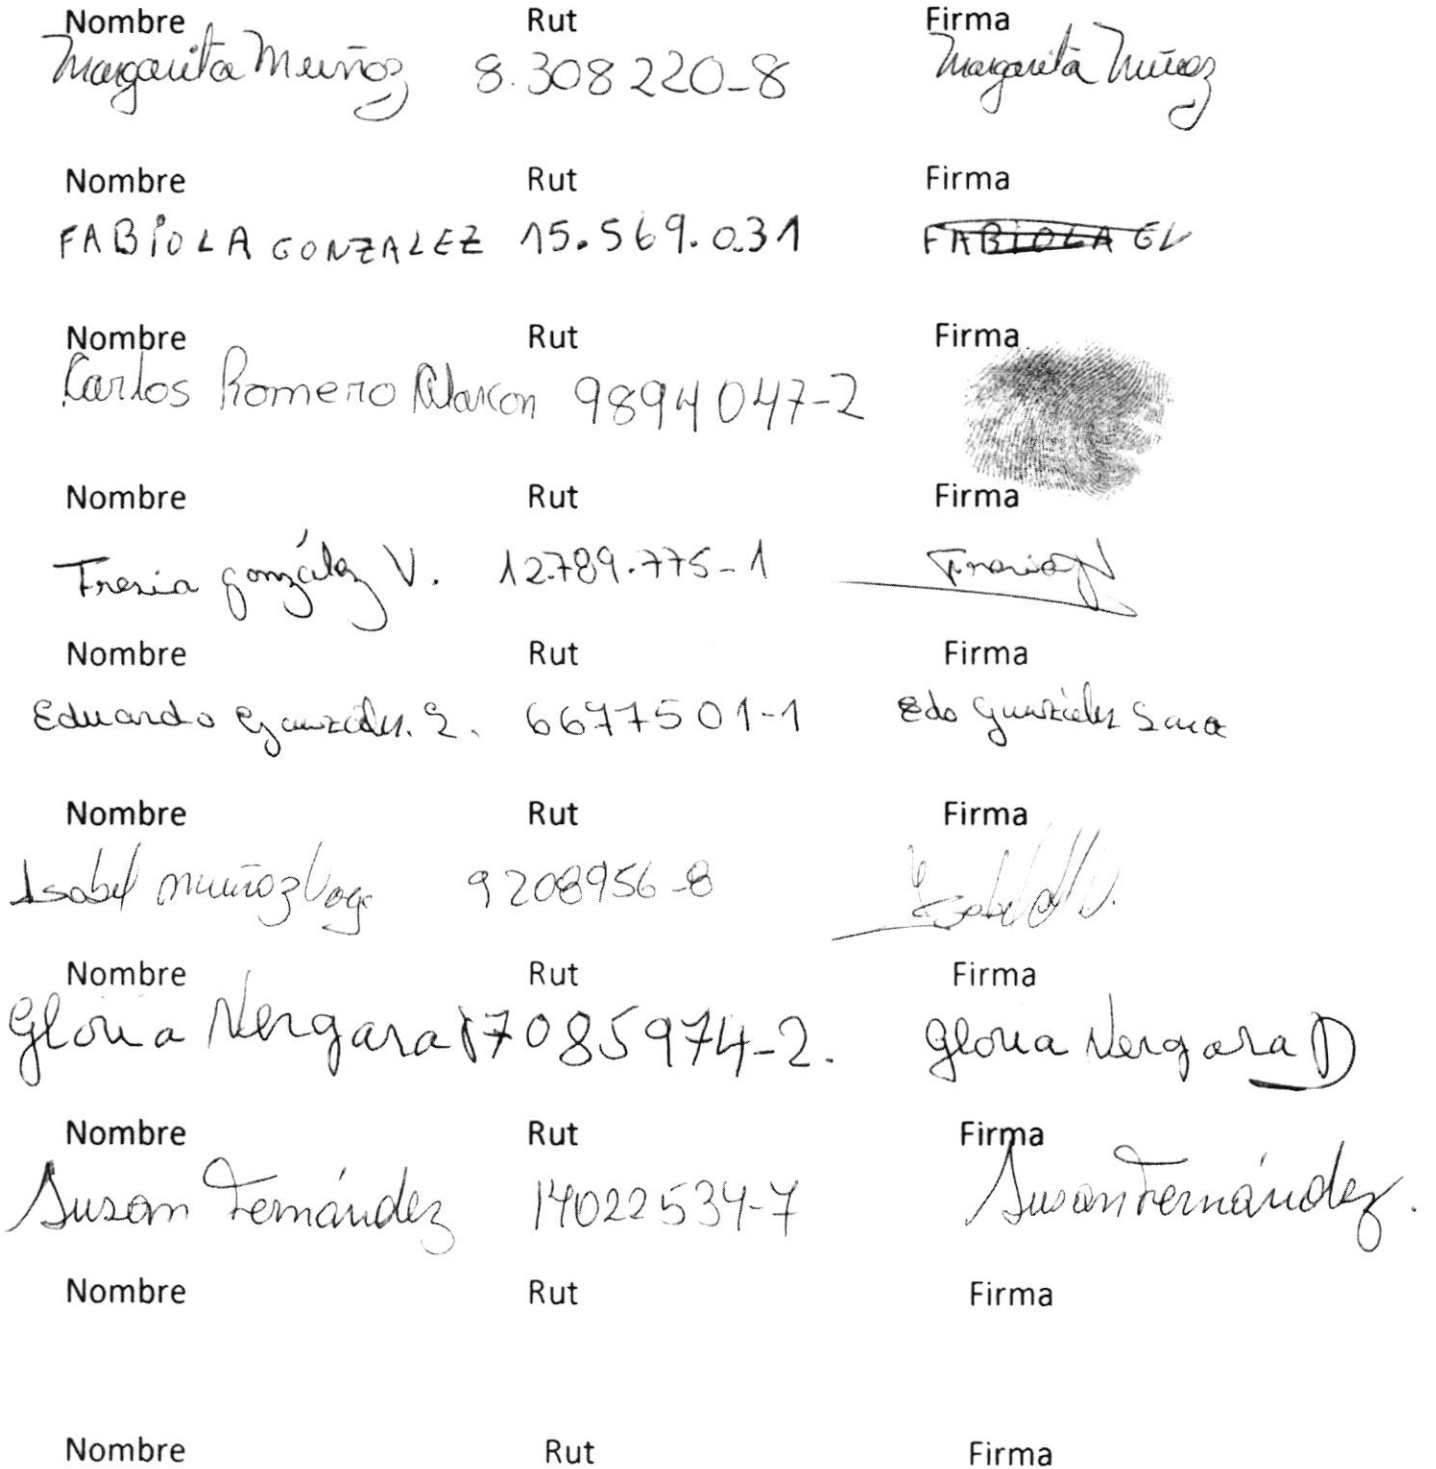 Nombre Rut Firma
Margarita Muñoz 8.308220-8 Margarita Muñoz
Nombre Rut Firma
FABIOLA GONZALEZ 15.569.031 FABIOLA GV
Nombre Rut Firma
Carlos Romero Alarcon 9894047-2
Nombre Rut Firma
Fresia González V. 12.789.775-1 Fresia
Nombre Rut Firma
Eduardo González. S. 6677501-1 Edo González
Nombre Rut Firma
Isabel muñoz 9208956-8 Isabel
Nombre Rut Firma
Gloria Vergara 17085974-2. Gloria Vergara D
Nombre Rut Firma
Susan Fernández 14022534-7 Susan Fernández.
Nombre Rut Firma
Nombre Rut Firma